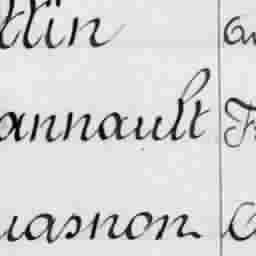 tlin
annault
uasnon